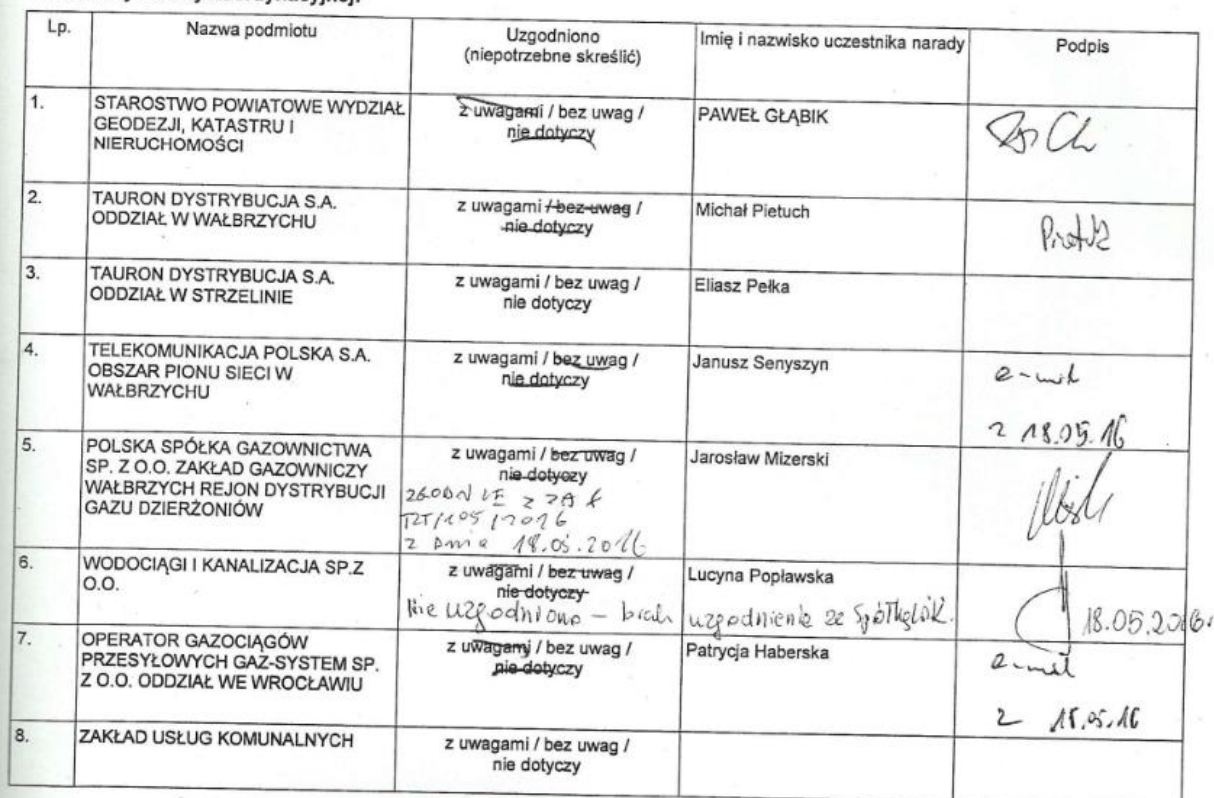 Lp.
Nazwa podmiotu
Uzgodniono
(niepotrzebne skreślić)
Imię i nazwisko uczestnika narady
Podpis
1.
STAROSTWO POWIATOWE WYDZIAŁ
GEODEZJI, KATASTRU I
NIERUCHOMOŚCI
z uwagami / bez uwag /
nie dotyczy
PAWEŁ GŁĄBIK
2.
TAURON DYSTRYBUCJA S.A.
ODDZIAŁ W WAŁBRZYCHU
z uwagami / bez uwag /
nie dotyczy
Michał Pietuch
3.
TAURON DYSTRYBUCJA S.A.
ODDZIAŁ W STRZELINIE
z uwagami / bez uwag /
nie dotyczy
Eliasz Pełka
4.
TELEKOMUNIKACJA POLSKA S.A.
OBSZAR PIONU SIECI W
WAŁBRZYCHU
z uwagami / bez uwag /
nie dotyczy
Janusz Senyszyn
e-mail
z 18.05.16
5.
POLSKA SPÓŁKA GAZOWNICTWA
SP. Z O.O. ZAKŁAD GAZOWNICZY
WAŁBRZYCH REJON DYSTRYBUCJI
GAZU DZIERŻONIÓW
z uwagami / bez uwag /
nie dotyczy
ZGODNIE Z ZAŁ
z dnia 18.05.2016
Jarosław Mizerski
6.
WODOCIĄGI I KANALIZACJA SP.Z
O.O.
z uwagami / bez uwag /
nie dotyczy
Nie uzgodniono - brak uzgodnienia ze Spółką WiK.
Lucyna Popławska
18.05.2016r
7.
OPERATOR GAZOCIĄGÓW
PRZESYŁOWYCH GAZ-SYSTEM SP.
Z O.O. ODDZIAŁ WE WROCŁAWIU
z uwagami / bez uwag /
nie dotyczy
Patrycja Haberska
e-mail
z 18.05.16
8.
ZAKŁAD USŁUG KOMUNALNYCH
z uwagami / bez uwag /
nie dotyczy